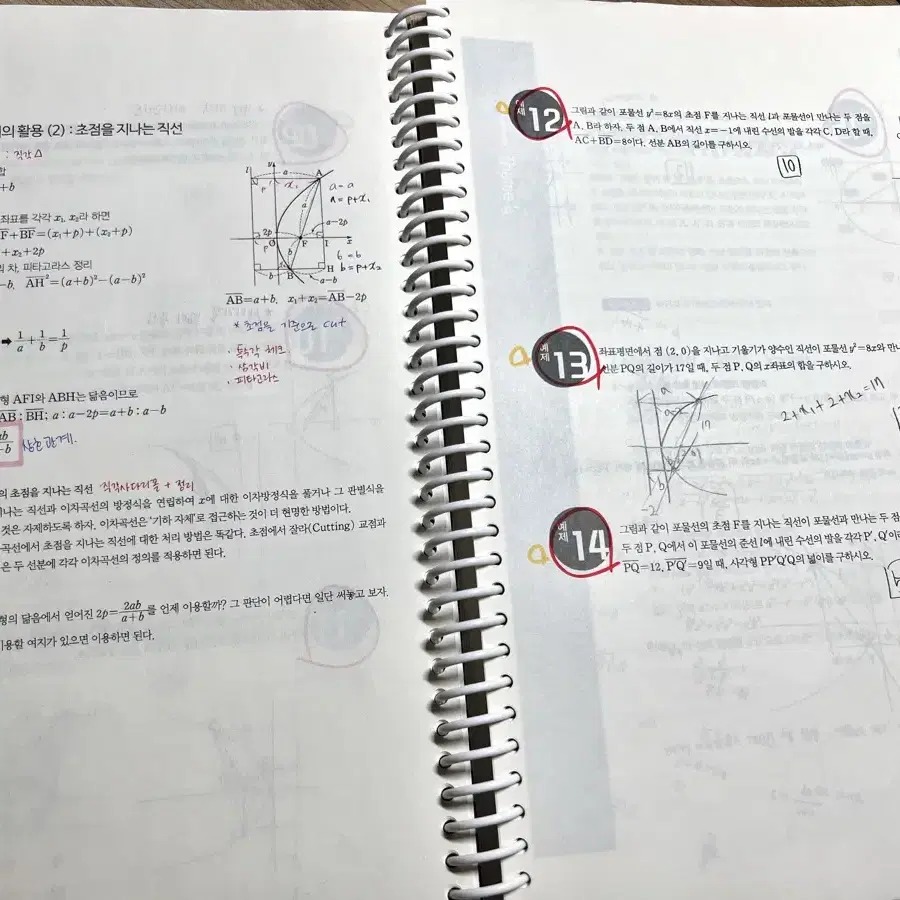 의 활용 (2) : 초점을 지나는 직선
: 직각△
합
+b
좌표를 각각 x₁, x₂라 하면
F+BF=(x₁+p)+(x₂+p)
+x₂+2p
차, 피타고라스 정리
-b, AH²=(a+b)²-(a-b)²
➡ 1/a + 1/b = 1/p
형 AFI와 ABH는 닮음이므로
AB : BH; a : a-2p=a+b : a-b
a=a
a=p+x₁
a-2p
b=b
b=p+x₂
a-b
AB=a+b, x₁+x₂=AB-2p
* 초점을 기준으로 cut
· 특수각 체크
· 삼각비
· 피타고라스
의 초점을 지나는 직선 직각사다리꼴 + 정리
나는 직선과 이차곡선의 방정식을 연립하여 x에 대한 이차방정식을 풀거나 그 판별식을
것은 자제하도록 하자. 이차곡선은 '기하 자체'로 접근하는 것이 더 현명한 방법이다.
곡선에서 초점을 지나는 직선에 대한 처리 방법은 똑같다. 초점에서 잘라(Cutting) 교점과
은 두 선분에 각각 이차곡선의 정의를 적용하면 된다.
형의 닮음에서 얻어진 2p=2ab/(a+b)를 언제 이용할까? 그 판단이 어렵다면 일단 써놓고 보자.
이용할 여지가 있으면 이용하면 된다.
예제 12
그림과 같이 포물선 y²=8x의 초점 F를 지나는 직선 l과 포물선이 만나는 두 점을
A, B라 하자. 두 점 A, B에서 직선 x=-1에 내린 수선의 발을 각각 C, D라 할 때,
AC+BD=8이다. 선분 AB의 길이를 구하시오.
10
예제 13
좌표평면에서 점 (2, 0)을 지나고 기울기가 양수인 직선이 포물선 y²=8x와 만나
선분 PQ의 길이가 17일 때, 두 점 P, Q의 x좌표의 합을 구하시오.
2+x₁+2+x₂=17
17
-2
예제 14
그림과 같이 포물선의 초점 F를 지나는 직선이 포물선과 만나는 두 점
두 점 P, Q에서 이 포물선의 준선 l에 내린 수선의 발을 각각 P', Q'이라
PQ=12, P'Q'=9일 때, 사각형 PP'Q'Q의 넓이를 구하시오.